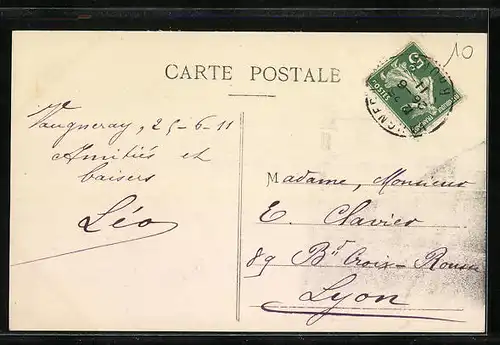 10
CARTE POSTALE
Vaugneray, 25-6-11
Amitiés et
baisers
Léo
Madame, Monsieur
E. Clavier
89 Bd Croix-Rousse
Lyon
5